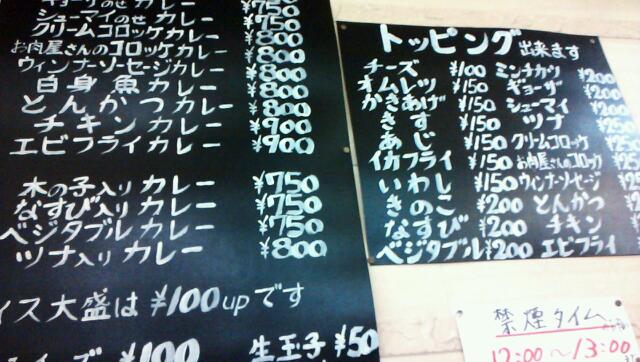 ギョーザのせ カレー ¥750
シューマイのせ カレー ¥750
クリームコロッケカレー ¥800
お肉屋さんのコロッケ カレー ¥800
ウィンナーソーセージカレー ¥800
白身魚カレー ¥800
とんかつカレー ¥800
チキンカレー ¥900
エビフライカレー ¥900
木の子入りカレー ¥750
なすび入りカレー ¥750
ベジタブルカレー ¥750
ツナ入りカレー ¥800
イス大盛は ¥100upです
¥100 生玉子 ¥50
トッピング出来ます
チーズ ¥100 ミンチカツ ¥200
オムレツ ¥150 ギョーザ ¥200
かきあげ ¥150 シューマイ ¥200
きす ¥150 ツナ
あじ ¥150 クリームコロッケ
イカフライ ¥150 お肉屋さんのコロッケ
いわし ¥150 ウィンナーソーセージ
きのこ ¥200 とんかつ
なすび ¥200 チキン
ベジタブル ¥200 エビフライ
禁煙タイム
12:00~13:00